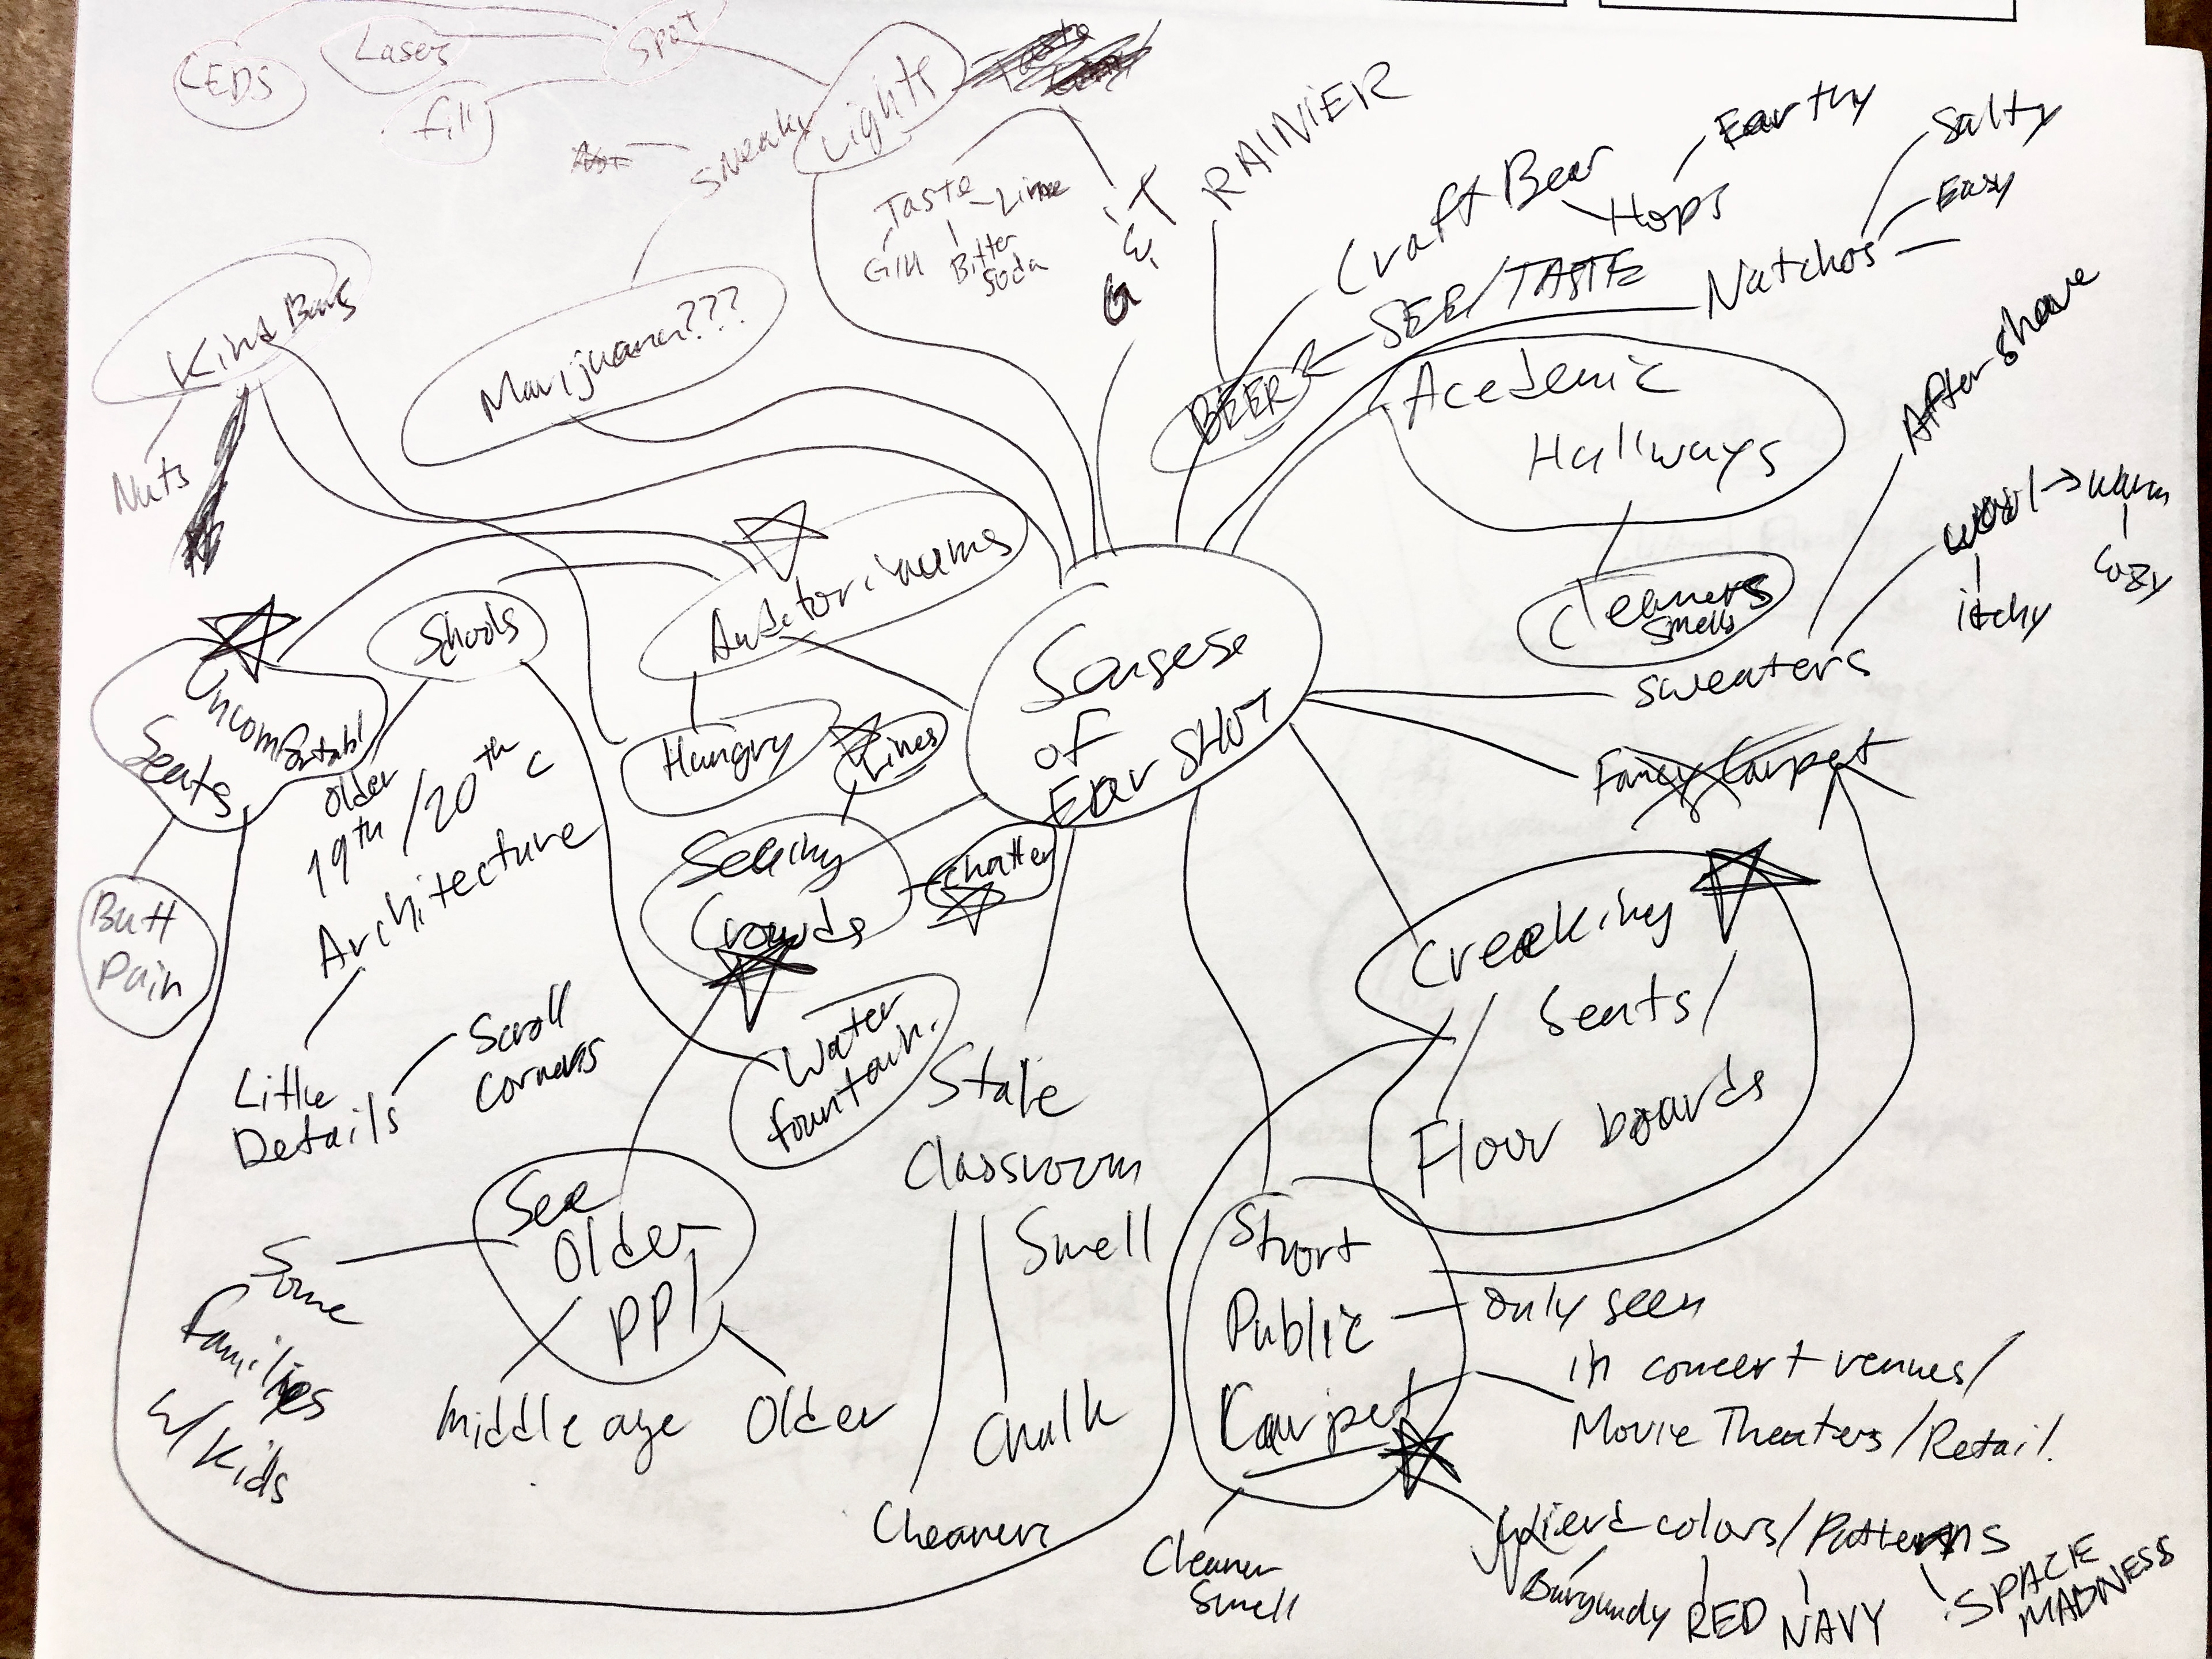 LEDS
Laser
Spot
fill
Lights
Sneaky
Taste
Lime
Gin
Bitter
Soda
G & T
RAINIER
Craft Bear
Hops
Earthy
SEE/TASTE
BEER
Natchos
Salty
Easy
Kind Bars
Nuts
Marijuana???
Acedemic
Hallways
Cleaners
Smells
After shave
wool → warm
itchy
sweaters
Fancy Carpet
Senses
of
Ear SHOT
Auditoriums
Schools
Uncomfortabl
Seats
Butt
Pain
Older
19th/20th c
Architecture
Little
Details
Scroll
Corners
Hungry
Lines
Seeing
Crowds
Chatter
Water
fountain.
Stale
Classroom
Smell
Chalk
Cleaners
See
Older
PPl
Some
families
w/ kids
Middle age
Older
Creaking
Seats/
Floor boards
Short
Public
Carpet
only seen
in concert venues/
Movie Theaters/Retail.
Cleaner
Smell
Wierd colors/Patterns
Burgundy
RED
NAVY
SPACE
MADNESS